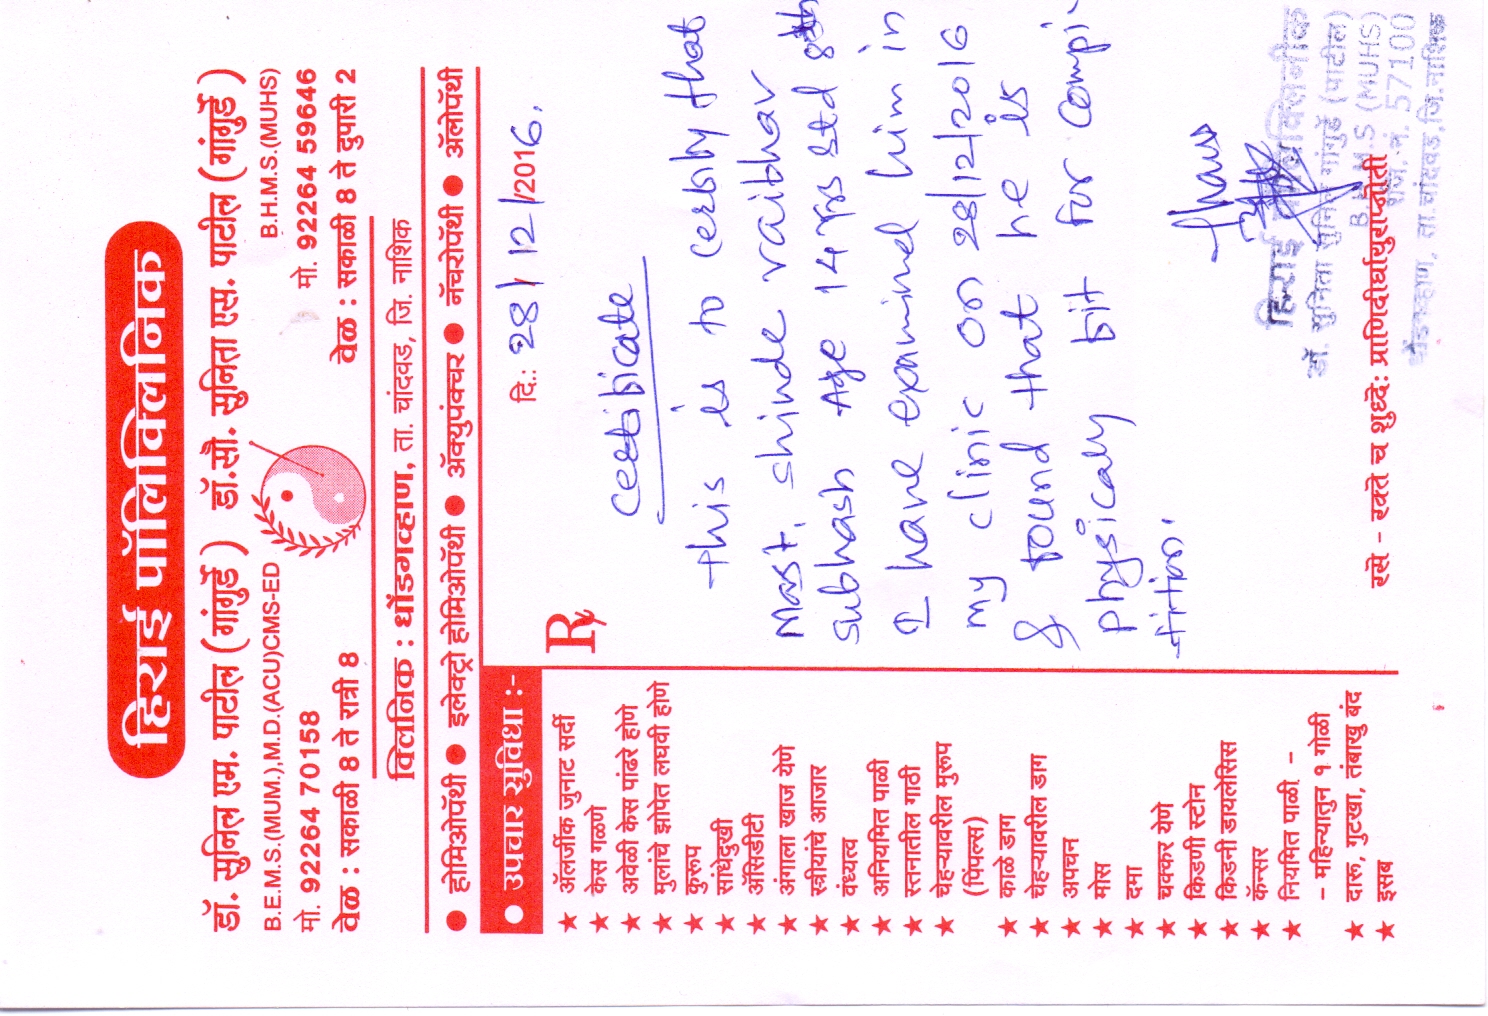 हिराई पॉलिक्लिनिक
डॉ. सुनिल एम. पाटील ( गांगुर्डे )
B.E.M.S.(MUM.),M.D.(ACU)CMS-ED
मो. 92264 70158
वेळ : सकाळी 8 ते रात्री 8
डॉ.सौ. सुनिता एस. पाटील ( गांगुर्डे )
B.H.M.S.(MUHS)
मो. 92264 59646
वेळ : सकाळी 8 ते दुपारी 2
क्लिनिक : धोंडगव्हाण, ता. चांदवड, जि. नाशिक
● होमिओपॅथी ● इलेक्ट्रो होमिओपॅथी ● ॲक्युपंक्चर ● नॅचरोपॅथी ● ॲलोपॅथी
● उपचार सुविधा :-
★ ॲलर्जीक जुनाट सर्दी
★ केस गळणे
★ अवेळी केस पांढरे होणे
★ मुलांचे झोपेत लघवी होणे
★ कुरूप
★ सांधेदुखी
★ ॲसिडीटी
★ अंगाला खाज येणे
★ स्त्रीयांचे आजार
★ वंध्यत्व
★ अनियमित पाळी
★ स्तनातील गाठी
★ चेहऱ्यावरील मुरूप
(पिंपल्स)
★ काळे डाग
★ चेहऱ्यावरील डाग
★ अपचन
★ मोस
★ दमा
★ चक्कर येणे
★ किडणी स्टोन
★ किडनी डायलेसिस
★ कॅन्सर
★ नियमित पाळी -
- महिन्यातुन १ गोळी
★ दारू, गुटखा, तंबाखु बंद
★ इसब
दि.: 28/12/2016.
Rx
Certificate
This is to certify that
Mast. shinde vaibhav
subhash Age 14 yrs std 8th
I have examined him in
my clinic on 28/12/2016
& found that he is
physically fit for compi-
tition.
हिराई पॉलिक्लिनीक
डॉ. सुनिता सुनिल गांगुर्डे (पाटील)
B.H.M.S (MUHS)
रजि. नं. 57100
धोंडगव्हाण, ता.चांदवड,जि.नाशिक
रसे - रक्ते च शुध्दे: प्राणिदीर्घायुराप्नोती